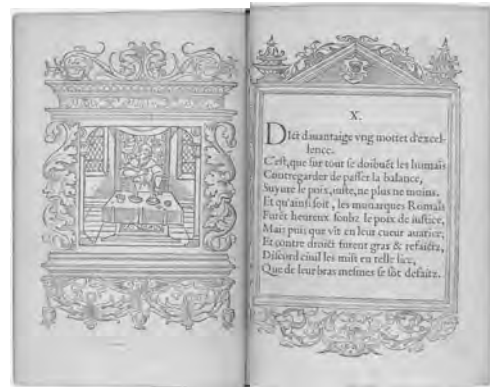 X.
DIct dauantaige vng mottet d'excel-
lence.
C'est, que sur tout se doibuēt les humaīs
Contregarder de passer la balance,
Suyure le pois, iuste, ne plus ne moins.
Et qu'ainsi soit, les monarques Romaīs
Furēt heureux soubz le poix de iustice,
Mais puis que vīt en leur cueur auarice,
Et contre droict furent gras & refaictz,
Discord ciuil les mist en telle lice,
Que de leur bras mesmes se sōt desfaitz.